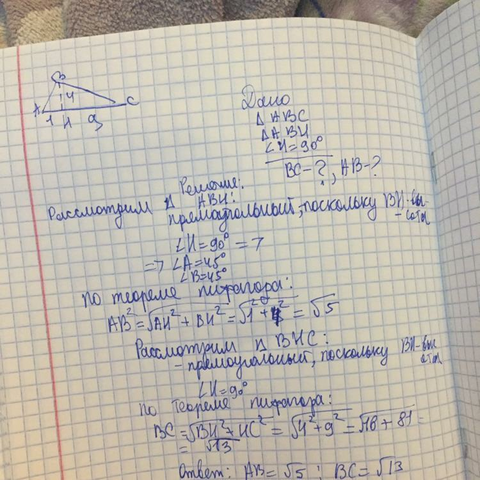 B
4
A
C
1
H
9
Дано
Δ ABC
Δ ABH
∠H=90°
BC-?, AB-?
Решение:
Рассмотрим Δ ABH:
- прямоугольный, поскольку BH-
∠H=90° =>
=> ∠A=45°
∠B=45°
По теореме пифагора:
AB²=√AH²+BH²=√1²+4²=√5
Рассмотрим Δ BHC:
- прямоугольный, поскольку BH-
∠H=90°
По Теореме пифагора:
BC=√BH²+HC²=√4²+9²=√16+81=
=√13
Ответ: AB=√5; BC=√13